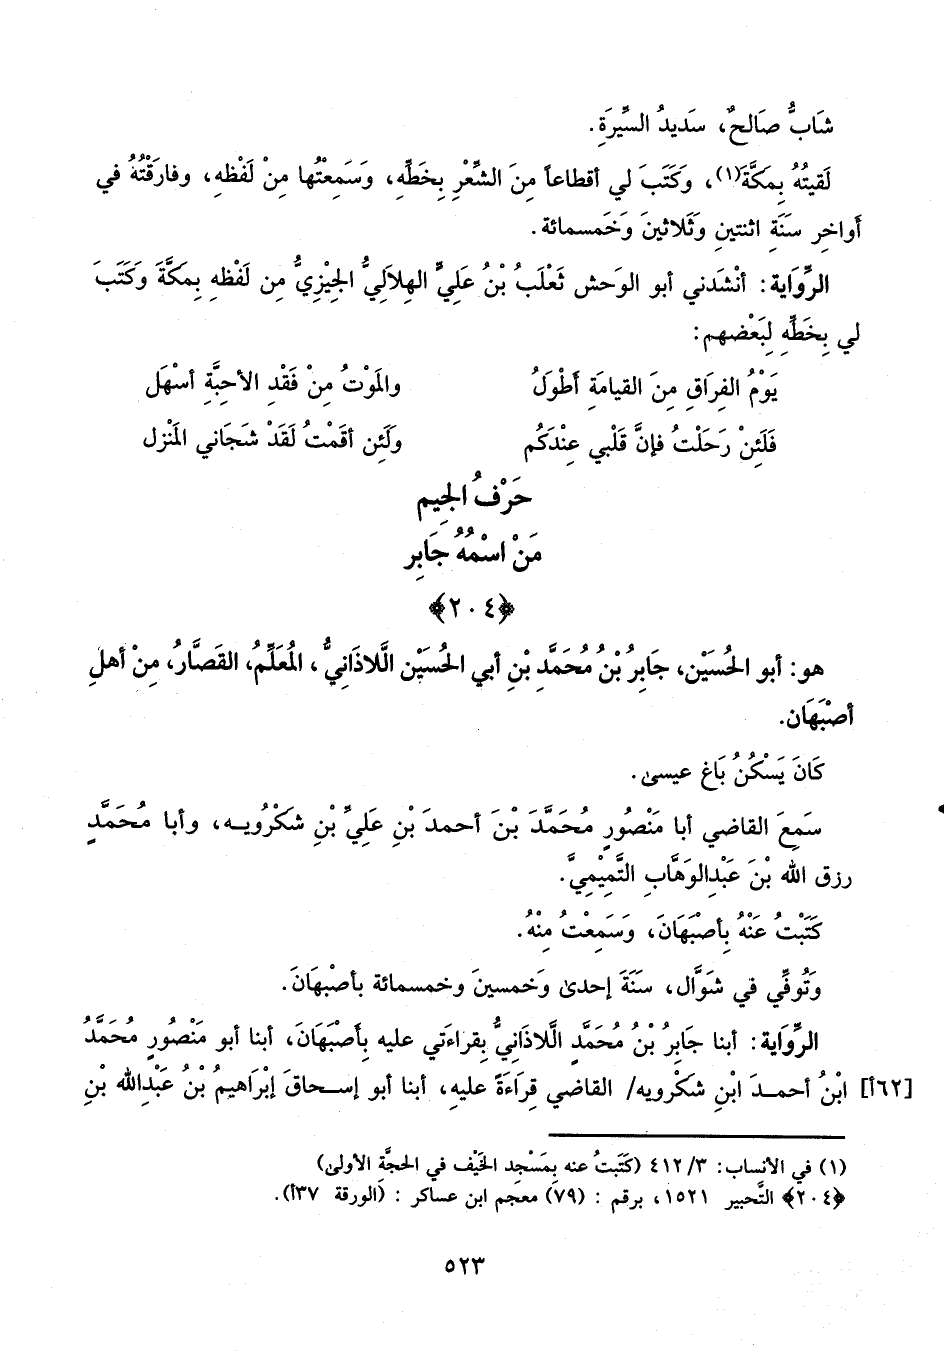 شَابٌّ صَالحٌ، سَديدُ السِّيرَةِ.
لَقيتُهُ بِمَكَّةَ(١)، وَكَتَبَ لي أقطاعاً مِنَ الشِّعْرِ بِخَطِّهِ، وَسَمِعْتُها مِنْ لَفْظِهِ، وفارَقْتُهُ في
أواخِرِ سَنَةِ اثنتينِ وَثَلاثينَ وَخَمسمائة.
الرِّوَاية: أنْشَدني أبو الوَحش ثَعْلَبُ بْنُ عَلِيٍّ الهِلالِيُّ الجِيْزِيُّ مِن لَفْظهِ بِمَكَّةَ وَكَتَبَ
لي بِخَطِّهِ لِبَعْضهِم:
يَوْمُ الفِرَاقِ مِنَ القيامَةِ أَطْوَلُ والمَوْتُ مِنْ فَقْدِ الأحِبَّةِ أسْهَل
فَلَئِنْ رَحَلْتُ فإنَّ قَلْبي عِنْدَكُم وَلَئِن أقَمْتُ لَقَدْ شَجَاني المَنْزل
حَرْفُ الجِيم
مَنْ اسْمُهُ جَابِر
﴿٢٠٤﴾
هو: أبو الحُسَيْن، جَابِرُ بْنُ مُحَمَّدِ بْنِ أبي الحُسَيْن اللَّاذَانِيُّ، المُعَلِّمُ، القَصَّارُ، مِنْ أهلِ
أصْبَهَان.
كَانَ يَسْكُنُ بَاغ عيسىٰ.
سَمِعَ القاضي أبا مَنْصُورٍ مُحَمَّدَ بْنَ أحمدَ بْنِ عَلِيِّ بْنِ شكْرُويـه، وأبا مُحَمَّدٍ
رزق الله بْنَ عَبْدِالوَهَّابِ التَّمِيْمِيَّ.
كَتَبْتُ عَنْهُ بِأصْبَهَانَ، وَسَمِعْتُ مِنْهُ.
وَتُوفِّي في شَوَّال، سَنَةَ إحدىٰ وَخمسينَ وخمسمائة بأصْبَهَانَ.
الرِّوَاية: أبنا جَابِرُ بْنُ مُحَمَّدٍ اللَّاذَانِيُّ بِقراءَتي عليه بِأَصْبَهَانَ، أبنا أبو مَنْصُورٍ مُحَمَّدُ
[٦٢أ] ابْنُ أحمـدَ ابْنِ شكْرويه/ القاضي قِرَاءَةً عليهِ، أبنا أبو إسـحاقَ إبْرَاهيمُ بْنُ عَبْدِالله بْنِ
(١) في الأنساب: ٤١٢/٣ (كَتَبتُ عنه بِمَسْجِد الخَيْف في الحجَّةِ الأولىٰ)
﴿٢٠٤﴾ التَّحبير ١٥٢١، برقم : (٧٩) معجم ابن عساكر : (الورقة ٣٧أ).
٥٢٣